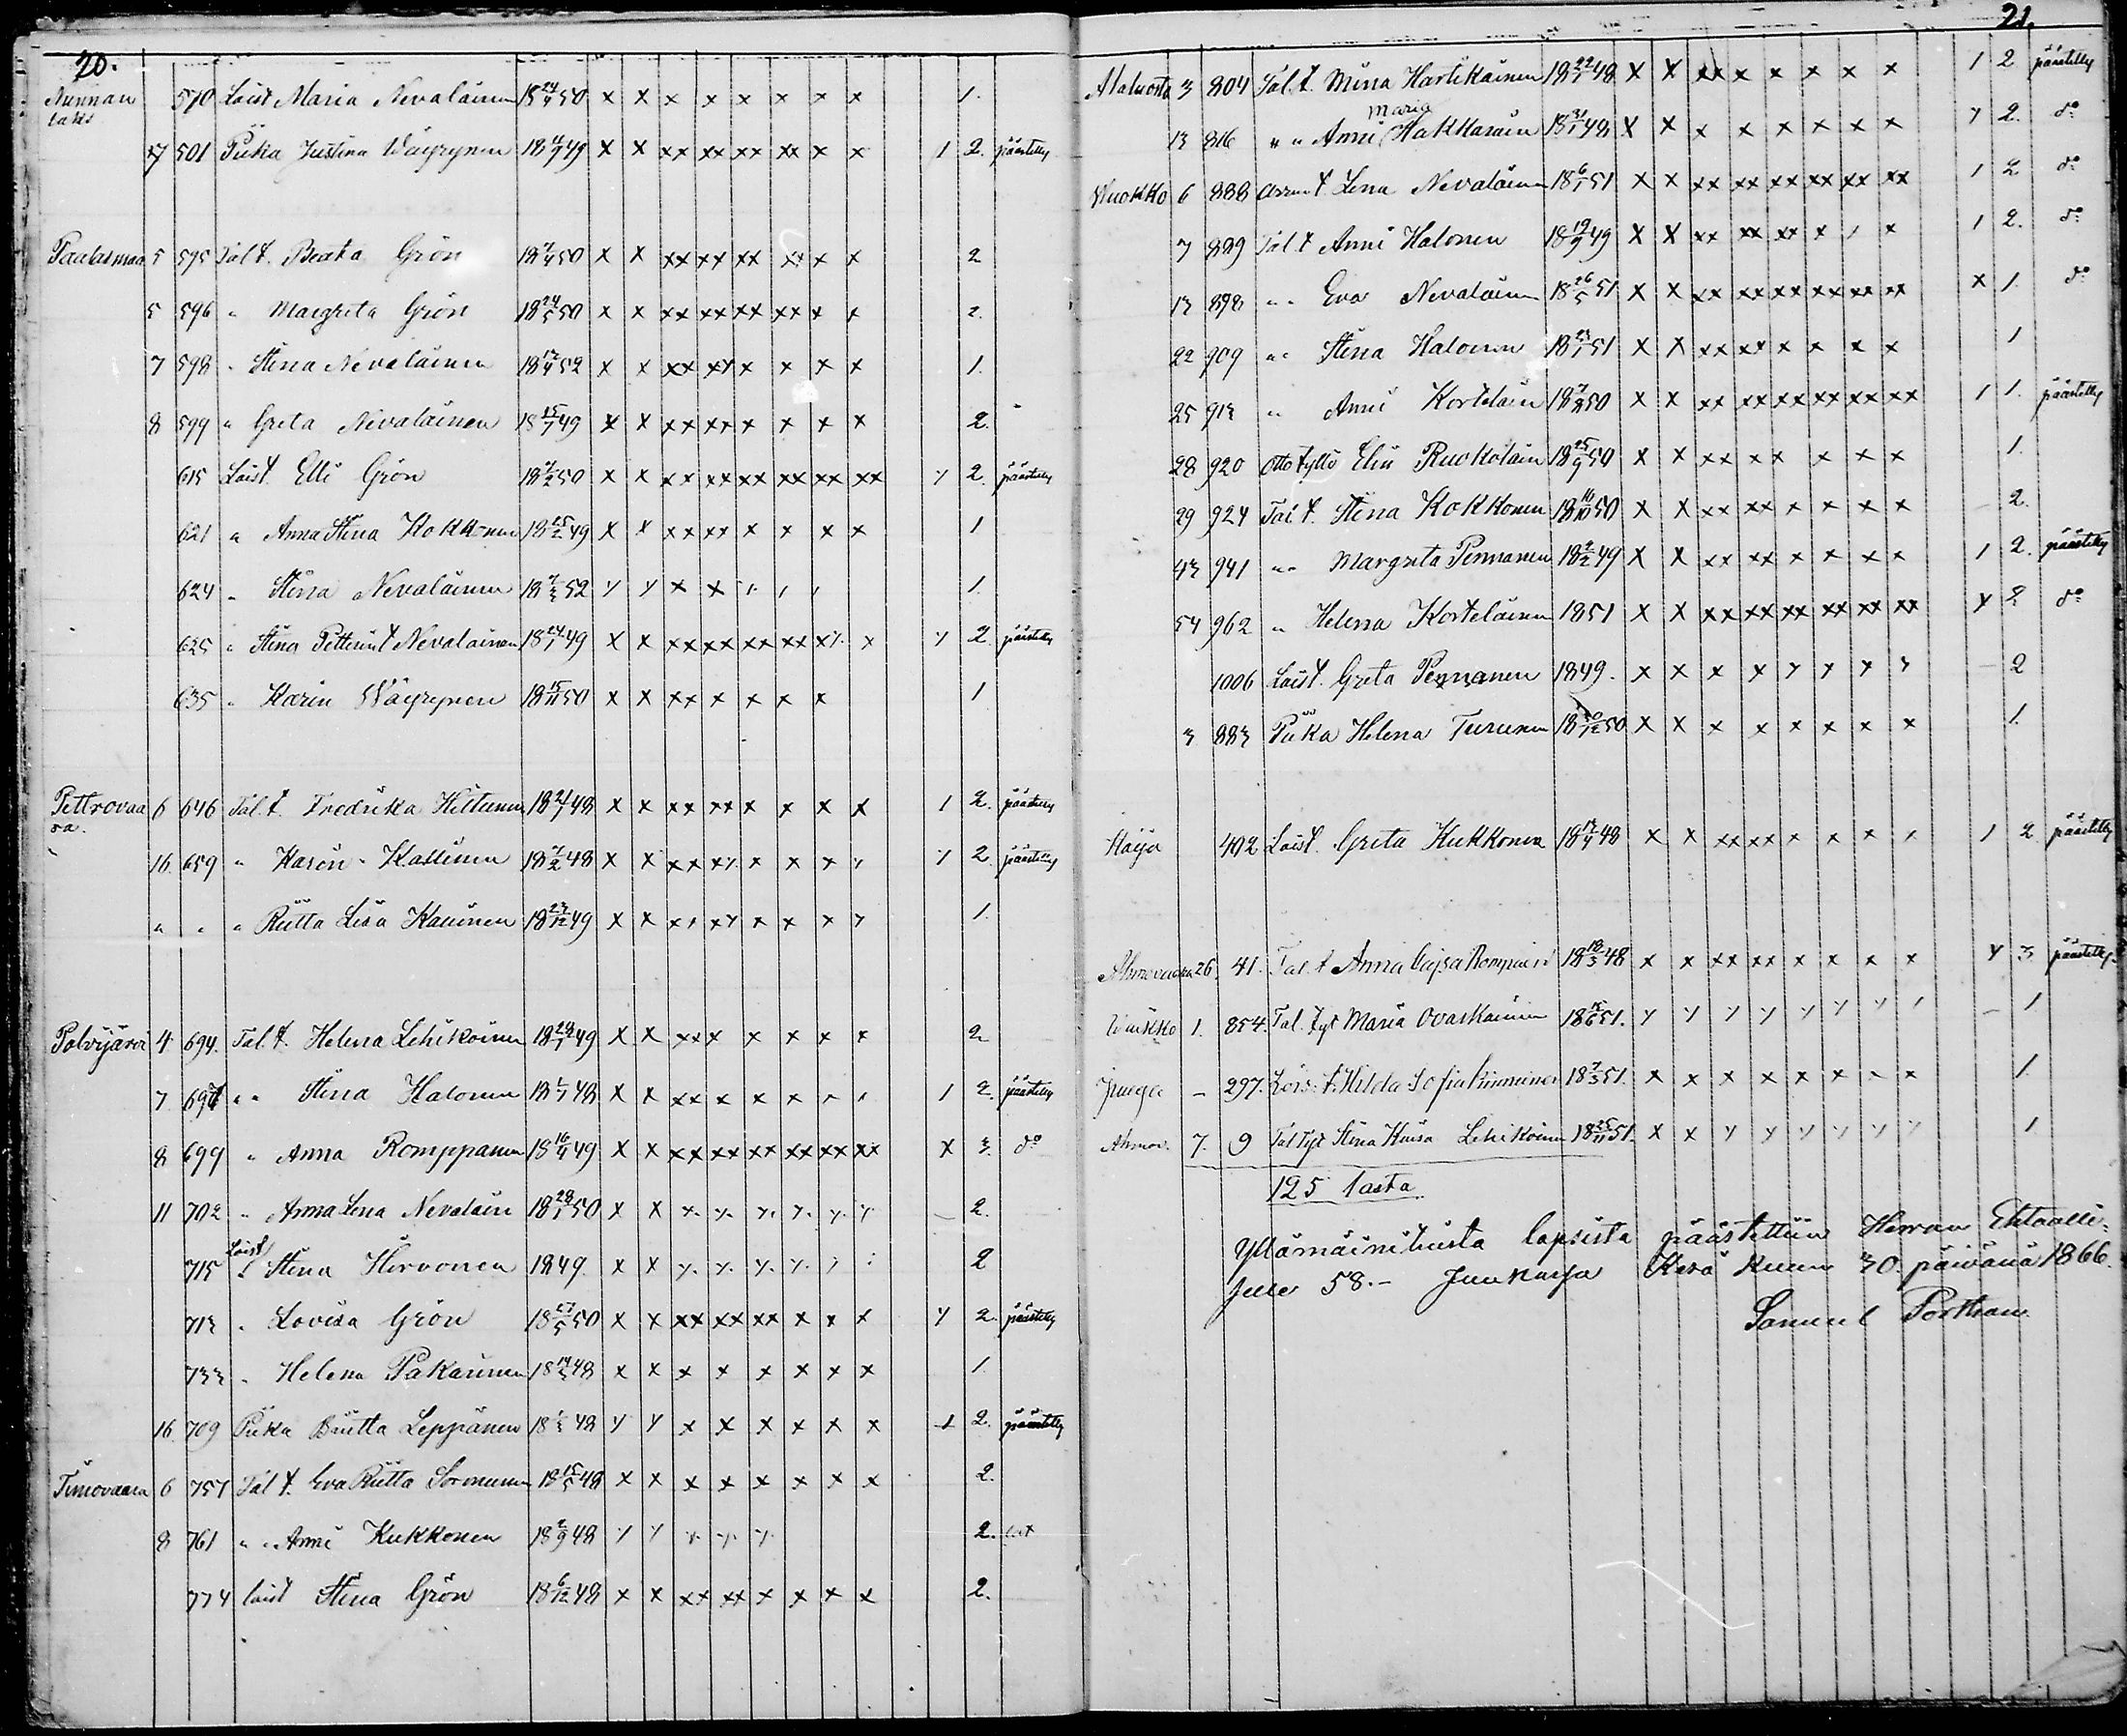 20.
Nunnan 570 Loist Maria Nevalainen 18 24/4 50 x x x x x x x x 1.
laks
17 501 Piika Justina Väyrynen 18 4/9 49 x x xx xx xx xx x x 1 2. päästetty
Paalasmaa 5 595 Tal. t. Beata Grön 18 7/4 50 x x xx xx xx xx x x 2
5 596 " Margreta Grön 18 24/5 50 x x xx xx xx xx x x 2.
7 598 " Stina Nevalainen 18 12/4 52 x x xx xx x x x x 1.
8 599 " Greta Nevalainen 18 15/7 49 x x xx xx x x x x 2.
615 Loist. Elli Grön 18 7/2 50 x x xx xx xx xx xx xx x 2. päästetty
621 " Anna Stina Kokkonen 18 25/2 49 x x xx xx x x x x 1
624 " Stina Nevalainen 52 x x x x 1.
625 " Stina Petterint Nevalainen 18 24/1 49 x x xx xx xx xx xx x x 2 päästetty
635 " Karin Wäyrynen 18 15/11 50 x x xx x x x x 1
Pettrovaa 6 646 Tal. t. Fredrika Hiltunen 48 x x xx xx x x x x 1 2. päästetty
ra.
16. 659 " Karin Kallinen 18 7/2 48 x x xx xx x x x x x 2. päästetty
" " " Riitta Lisa Kauinen 18 23/12 49 x x xx xx x x x x 1.
Polvijärvi 4 694. Tal. t. Helena Lehikoinen 18 28/1 49 x x xx x x x x x 2
7 697 " " Stina Halonen 48 x x xx x x x x x 1 2. päästetty
8 699 " Anna Romppanen 18 16/4 49 x x xx xx xx xx xx xx x 3. do
11 702 " Anna Lena Nevalain 18 28/1 50 x x x x x x x x – 2.
715 Loist Stina Hirvonen 1849. x x x x x x 2
713 " Lovisa Grön 18 27/5 50 x x xx xx xx x x x x 2. päästetty
733 " Helena Pakarinen 48 x x x x x x x x 1.
16. 709 Piika Briitta Leppänen 48 x x x x x x x x 1 2. päästetty
Timovaara 6 757 Tal t. Eva Riitta Sormunen 18 15/5 48 x x x x x x x x 2.
8 761 " " Anni Kukkonen 18 2/9 48 x x x x x 2.
774 loist Stina Grön 18 6/12 48 x x xx xx x x x x 2.
21.
Alaluosta 3 804 Tal. t. Mina Hartikainen 18 22/1 48 x x xx x x x x x 1 2 päästetty
Maria
13 816 " " Anni Hakkarain 18 31/1 48 x x x x x x x x x 2. do
Wuokko 6 888 Lena Nevalainen 18 6/1 51 x x xx xx xx xx xx xx 1 2 do
7 889 Tal t Anni Halonen 18 19/9 49 x x xx xx xx x x x 1 2. do
13 898 " " Eva Nevalainen 18 26/5 51 x x xx xx xx xx xx xx x 1. do
22 909 " " Stina Halonen 18 23/1 51 x x xx xx x x x x 1
25 913 " Anni Kortelain 50 x x xx xx xx xx xx xx 1 1. päästetty
28 920 Otto tyttö Elin Ruokolain 18 25/9 50 x x xx xx x x x 1.
29 924 Tal t. Stina Kokkonen 18 16/10 50 x x xx xx x x x x 2.
43 941 " " Margreta Pennanen 49 x x xx xx x x x x 1 2. päästetty
54 962 " Helena Kortelainen 1851 x x xx xx xx xx xx xx x 2 do
1006 Loist. Greta Pennanen 1849. x x x x x x x x – 2
3 883 Piika Helena Turunen 50 x x x x x x x x 1.
Höljä 402 Loist. Greta Kukkonen 18 12/4 48 x x xx xx x x x x 1 2 päästetty
Ahmovaara 26. 41. Tal. t Anna Cajsa Rompain 18 18/3 48 x x xx xx x x x x x 3 päästetty
1. 854 Tal. tyt Maria Ovaskainen 51. x x x x x x x – 1
Juuga – 297. Lois. t. Hilda Sofia Kinnuinen 18 7/3 51. x x x x x x x x 1.
Ahmov. 7. 9 Tal Tyt Stina Kaisa Lehikoinen 18 25/11 51. x x x x x x x x 1
125 lasta
Yllämainituista lapsista päästettiin Herran Ehtoolli-
selle 58.– Juukassa Kesä Kuun 30 päivänä 1866.
Samuel Porthan